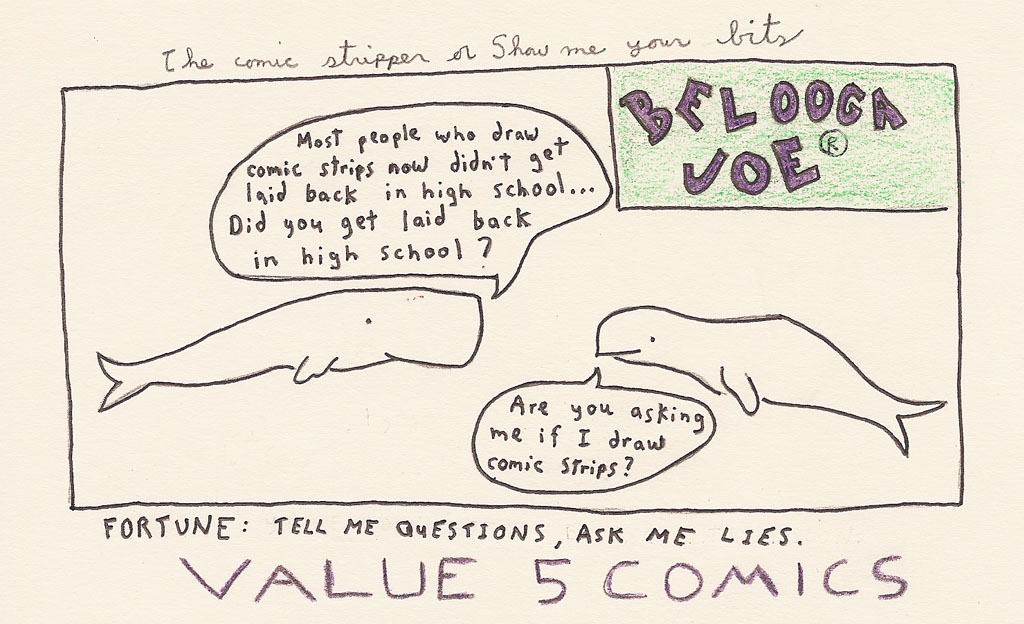 The comic stripper or Show me your bits
BELOOGA
JOE ®
Most people who draw
comic strips now didn't get
laid back in high school...
Did you get laid back
in high school?
Are you asking
me if I draw
comic strips?
FORTUNE: TELL ME QUESTIONS, ASK ME LIES.
VALUE 5 COMICS